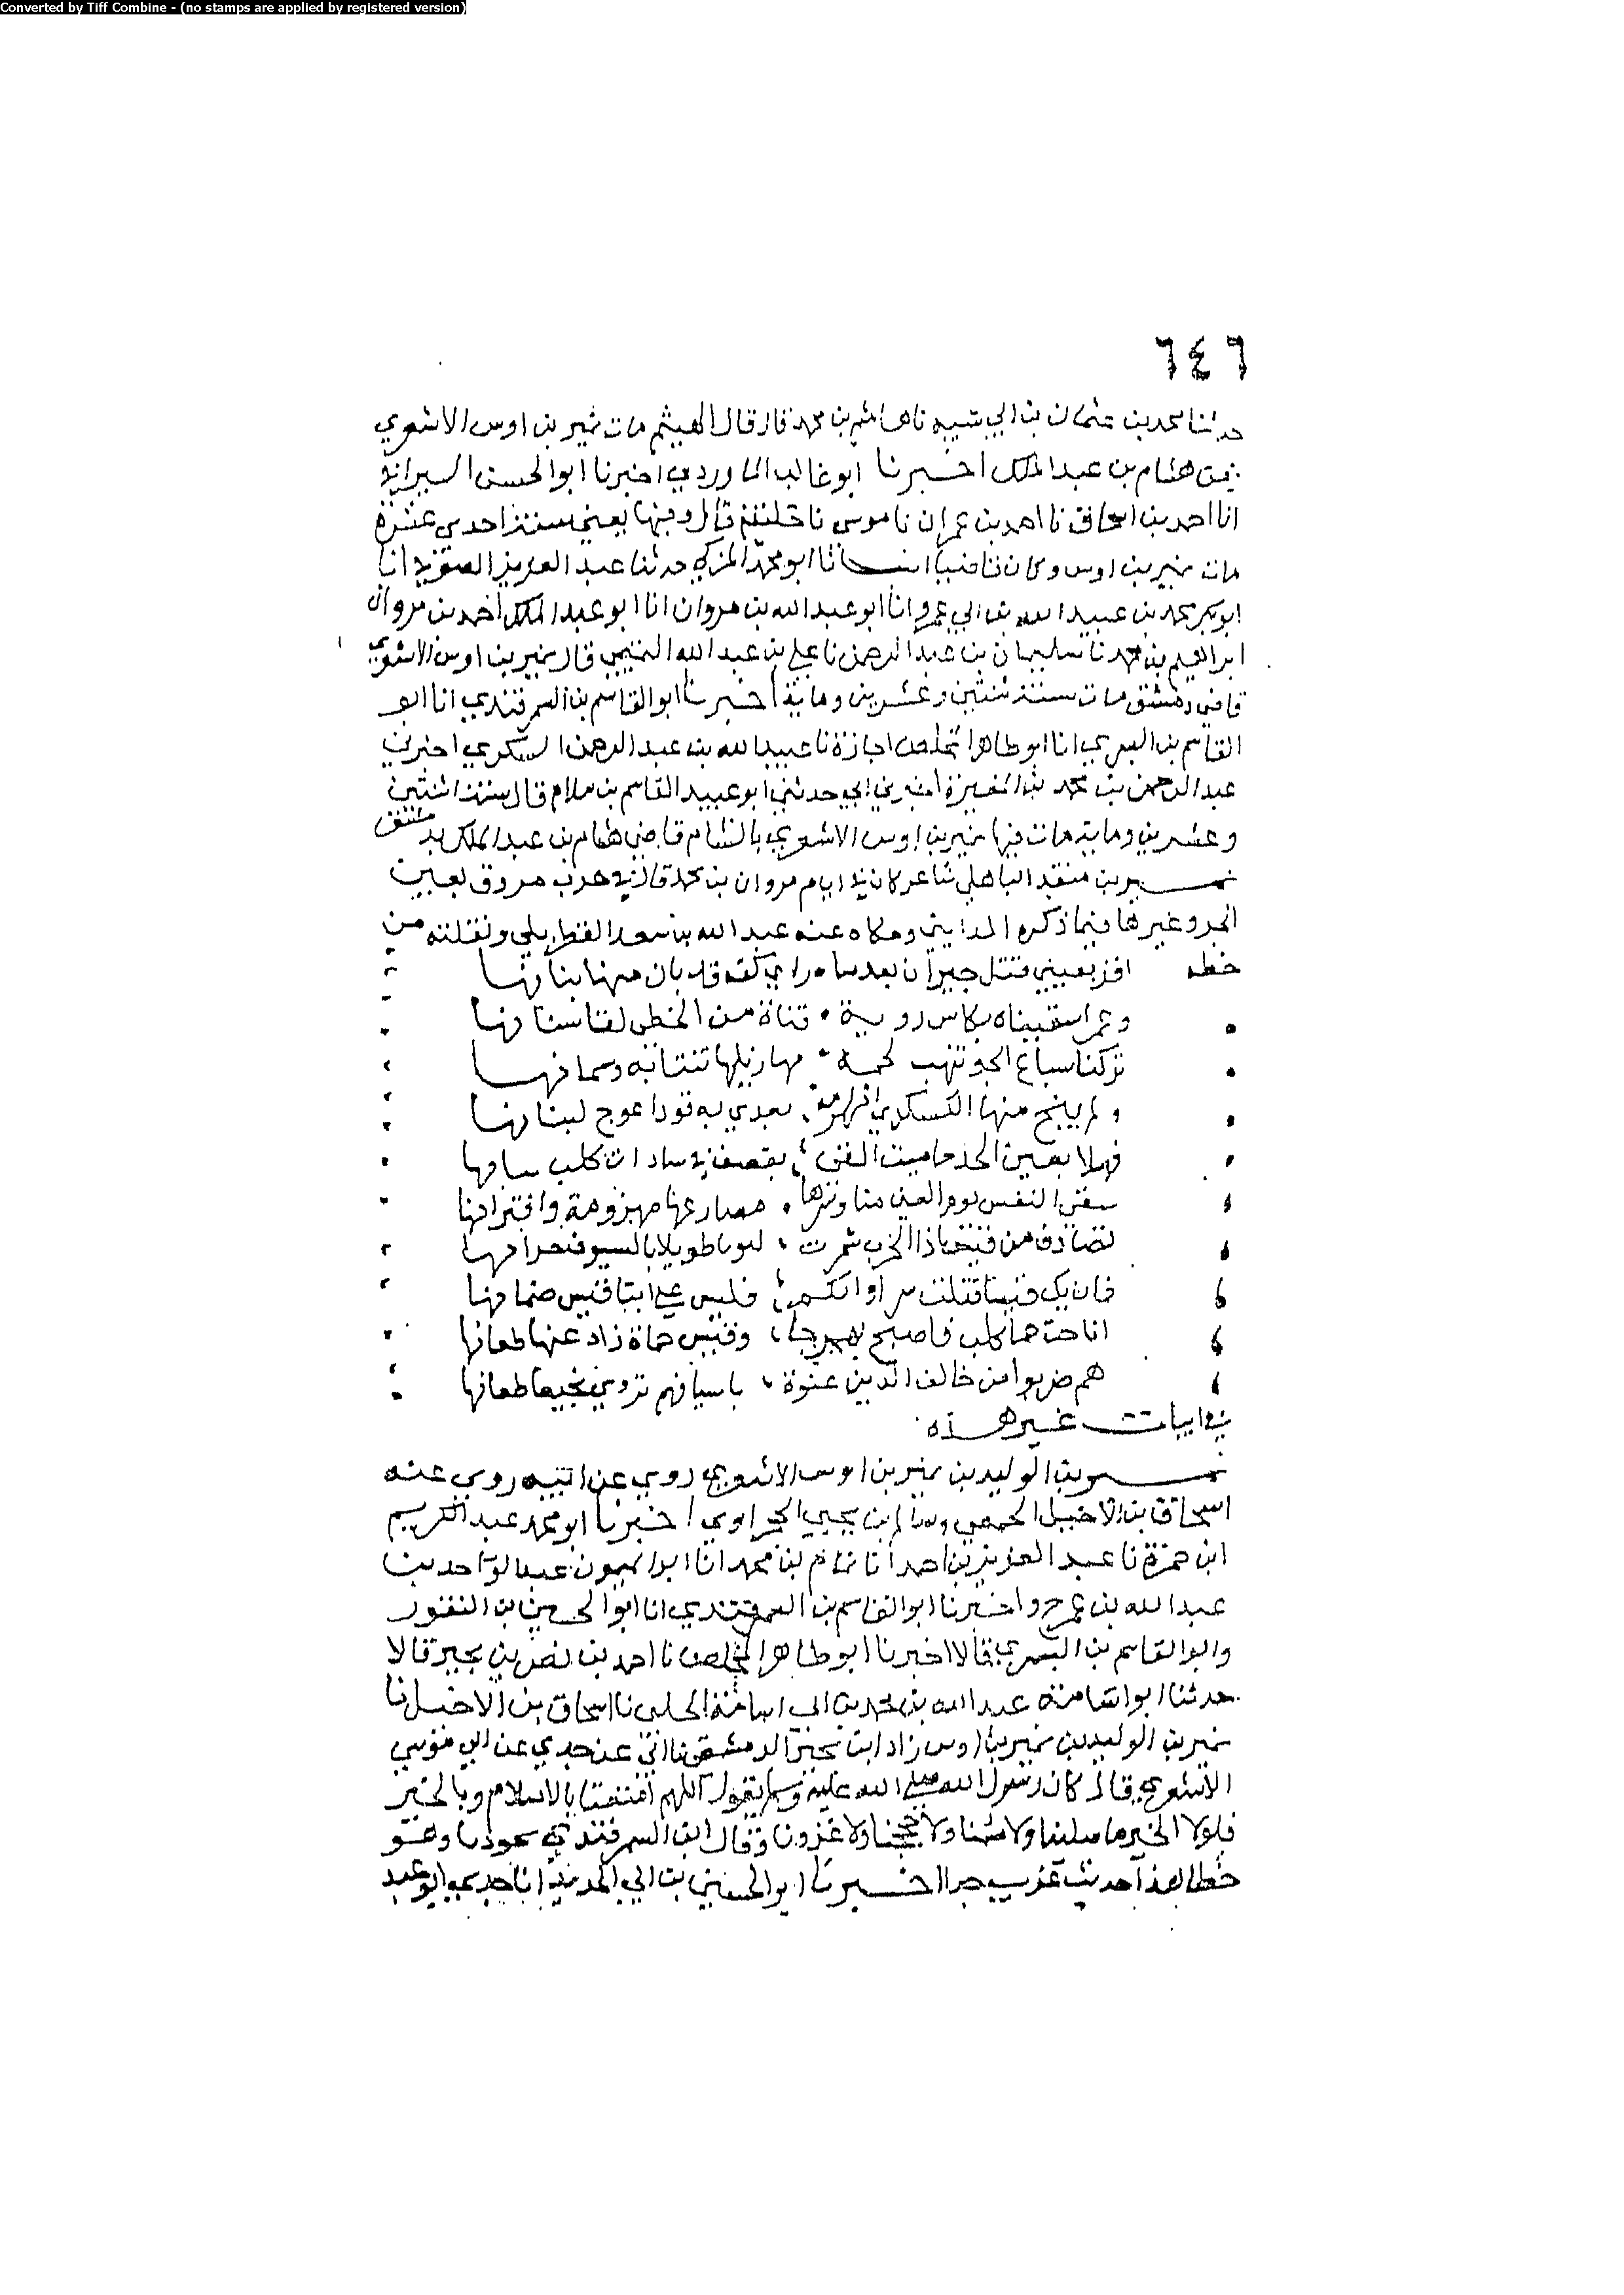 Converted by Tiff Combine - (no stamps are applied by registered version)
٦٤٦
حدثنا محمد بن عثمان بن ابي شيبه نا هاشم بن محمد قال قال الهيثم مات نمير بن اوس الاشعري
زمن هشام بن عبد الملك اخبرنا ابو غالب الماوردي اخبرنا ابو الحسن السيرافي
انا احمد بن اسحاق نا احمد بن عمران نا موسى نا خليفة قال وفيها يعني سنة احدى عشرة
مات نمير بن اوس وكان قاضيا انبانا ابو محمد المزكي حدثنا عبد العزيز الصوفي انا
ابو بكر محمد بن عبيد الله بن ابي عمرو انا ابو عبد الله بن مروان انا ابو عبد الملك احمد بن مروان
ابراهيم بن محمد نا سليمان بن عبد الرحمن نا علي بن عبد الله التميمي قال نمير بن اوس الاشعري
قاضي دمشق مات سنة ثنتين وعشرين وماية اخبرنا ابو القاسم بن السمرقندي انا ابو
القاسم بن البسري انا ابو طاهر المخلص اجازة نا عبيد الله بن عبد الرحمن السكري اخبرني
عبد الرحمن بن محمد بن المغيرة اخبرني ابي حدثني ابو عبيد القاسم بن سلام قال سنة اثنتين
وعشرين وماية مات فيها نمير بن اوس الاشعري بالشام قاضي هشام بن عبد الملك بدمشق
نمير بن منقذ الباهلي شاعر كان في ايام مروان بن محمد قال في حرب مروان بعين
الجر وغيرها فيما ذكره المدايني وحكاه عنه عبد الله بن سعد القطربلي ونقلته من
خطه اقر بعيني قتل جيران بعدما راي كفه قد بان منها بنانها
وعمرا سقيناه بكاس روية قناة من الخطي لقنا سنانها
تركنا سباع الجو تنهب لحمه مهازيلها تنتابه وسمانها
ولم ينج منها السكسكي يعدي به قودا عوج لبانها
فهلا بعين الجر حاميت القنا سادات كلب
سقى النفس يوم العين منا مصارعها مهزومة
من اذا الحرب شمرت طويلا بالسيوف
فان يك قيسا قتلت سراواتكم فليس على ابنا قيس ضمانها
اباحت حما كلب فاصبح وقيس حماة زاد عنها طعانها
هم ضربوا من خالف الدين عنوة باسيافهم تروي طعانها
في ابيات غير هذه
نمير بن الوليد بن نمير بن اوس الاشعري روى عن ابيه روى عنه
اسحاق بن الاخيل الحمصي وسالم بن يحيى الحجراوي اخبرنا ابو محمد عبد الكريم
ابن حمزة نا عبد العزيز بن احمد انا تمام بن محمد انا ابو الميمون عبد الواحد بن
عبد الله بن عمر ح واخبرنا ابو القاسم بن السمرقندي انا ابو الحسين بن النقور
وابو القاسم بن البسري قالا اخبرنا ابو طاهر المخلص نا احمد بن نصر بن بجير قالا
حدثنا ابو اسامة عبد الله بن محمد بن ابي اسامة الحلبي نا اسحاق بن الاخيل نا
نمير بن الوليد بن نمير بن اوس زاد ابن بجير الدمشقي نا ابي عن جدي عن ابي موسى
الاشعري قال كان رسول الله صلى الله عليه وسلم يقول اللهم امتعنا بالاسلام وبالخبز
فلولا الخبز ما صلينا ولا صمنا ولا حججنا ولا غزونا وقال ابن السمرقندي وهو
خطا هذا حديث غريب جدا اخبرنا ابو الحسين بن ابي الحديد انا جدي ابو عبد